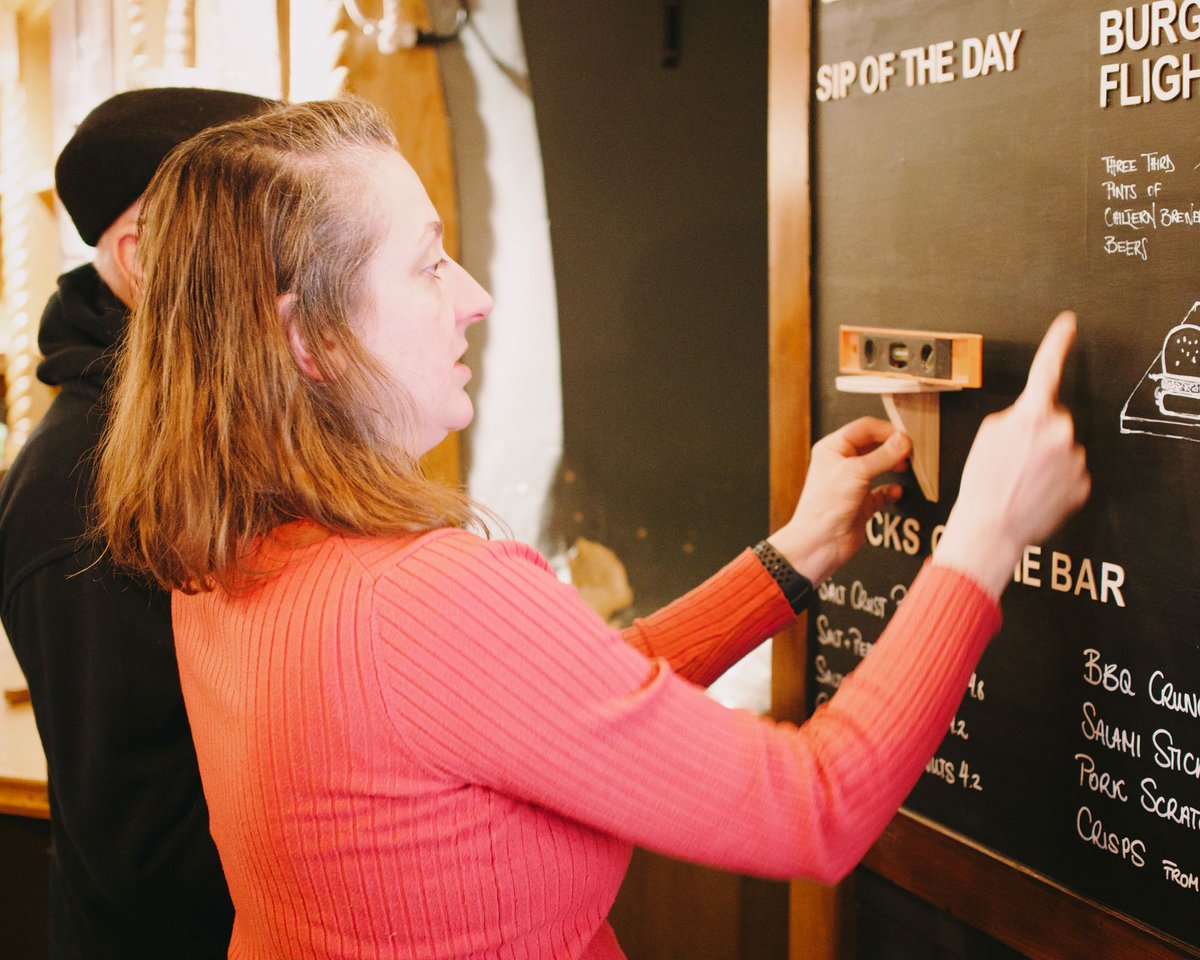 SIP OF THE DAY
BURG
FLIGH
THREE THIRD
PINTS OF
CHILTERN BREWE
BEERS
CKS O
HE BAR
SALT CRUST
SALT + PE
4.2
UTS 4.2
BBQ CRUN
SALAMI STICK
PORK SCRAT
CRISPS FROM